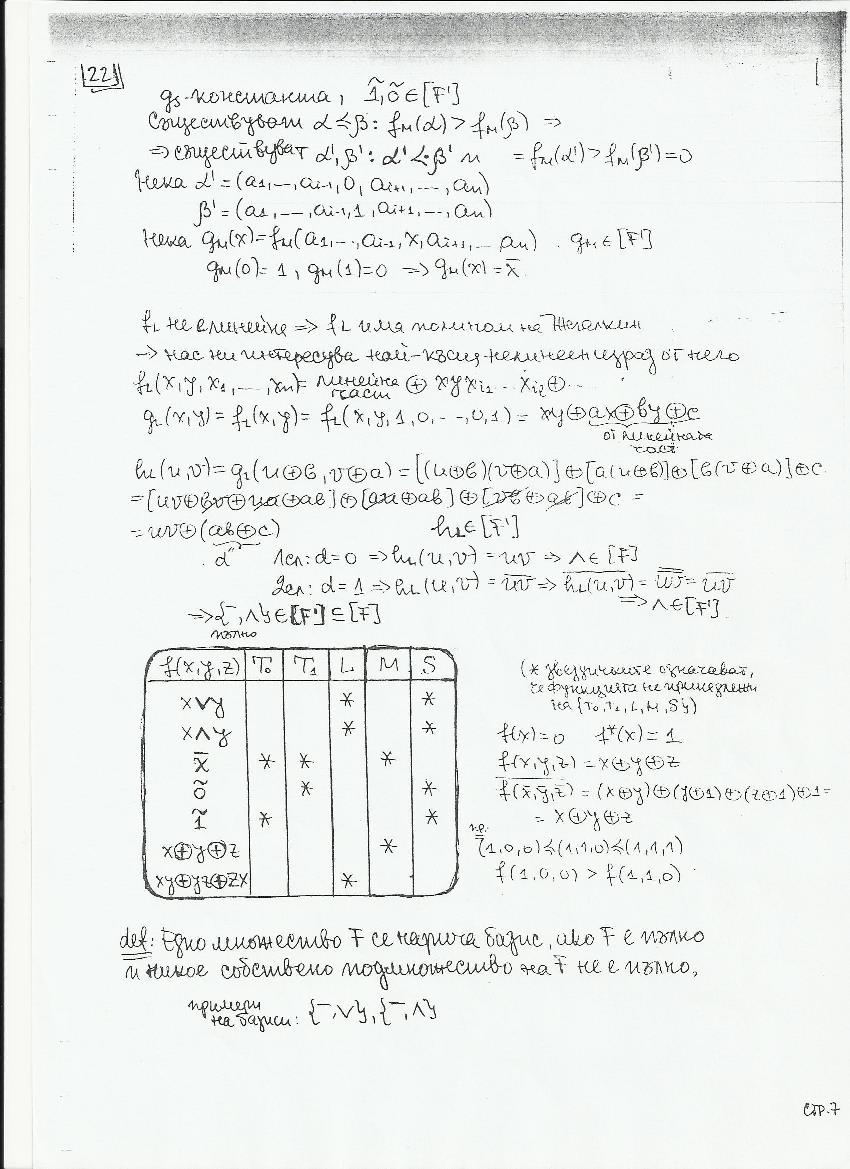 22
g_s-константа, 1̃,õ∈[F']
Съществуват α≼β: f_M(α) > f_M(β) ⇒
⇒ съществуват α', β': α' ⋖ β' и = f_M(α') > f_M(β')=0
Нека α' = (a1,--,ai-1, 0, ai+1, ---, an)
β' = (a1, --, ai-1, 1, ai+1, --, an)
Нека g_M(x)=f_M(a1,--,ai-1, x, ai+1, -- an) . g_M∈[F']
g_M(0)=1, g_M(1)=0 ⇒ g_M(x) = x̄
f_L не е линейна ⇒ f_L има полином на Жегалкин
→ нас ни интересува най-къс нелинеен израз от него
f_L(x,y,x1,--,xn)= линейна част ⊕ xyxi1.. xi2⊕...
g_L(x,y) = f_L(x,y) = f_L(x,y,1,0,--,0,1) = xy⊕ax⊕by⊕c
от линейната част
h_L(u,v)=g_L(u⊕b, v⊕a)=[(u⊕b)(v⊕a)]⊕[a(u⊕b)]⊕[b(v⊕a)]⊕c
=[uv⊕bv⊕ua⊕ab]⊕[au⊕ab]⊕[vb⊕ab]⊕c =
= uv⊕(ab⊕c) h_L∈[F']
d 1сл: d=0 ⇒ h_L(u,v) = uv ⇒ ∧∈[F]
2сл: d=1 ⇒ h_L(u,v) = \overline{uv} ⇒ \overline{h_L(u,v)} = \overline{\overline{uv}} = uv
⇒ ∧∈[F'].
⇒ {¯,∧}∈[F']⊆[F]
пълно
f(x,y,z) T₀ T₁ L M S
x∨y * *
x∧y * *
x̄ * * *
õ * *
1̃ * *
x⊕y⊕z *
xy⊕yz⊕zx *
(* звездичките означават,
че функцията не принадлежи
на {T₀,T₁,L,M,S})
f(x)=0 f*(x)=1
f(x,y,z) = x⊕y⊕z
\overline{f(x̄,ȳ,z̄)} = (x⊕y)⊕(y⊕1)⊕(z⊕1)⊕1=
= x⊕y⊕z
пр.
(1,0,0)≼(1,1,0)≼(1,1,1)
f(1,0,0) > f(1,1,0)
def: Едно множество F се нарича базис, ако F е пълно
и никое собствено подмножество на F не е пълно,
примери
на базиси: {¯,∨}, {¯,∧}
стр.7